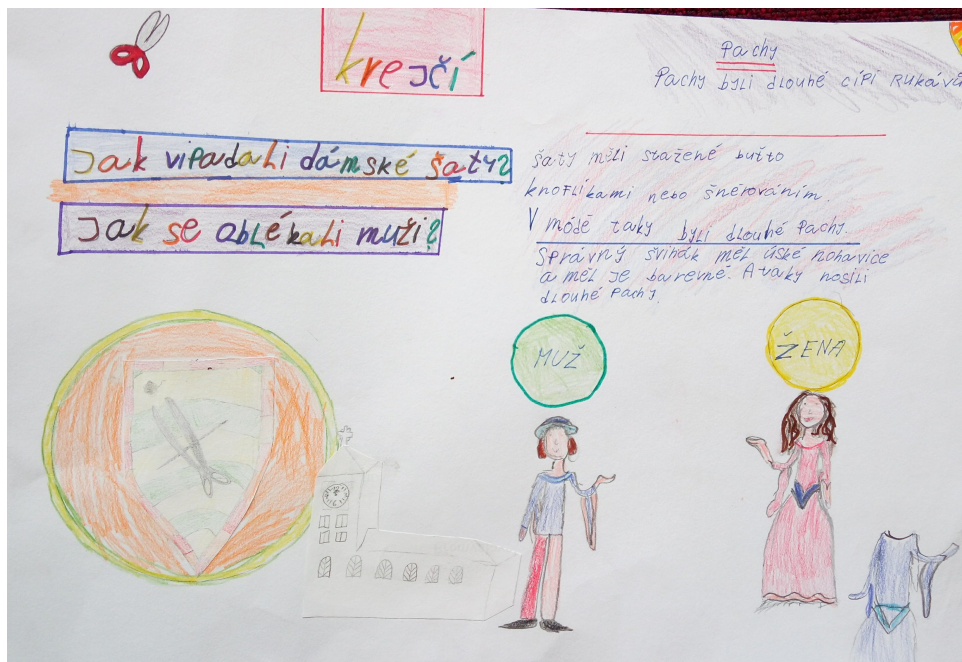 krejčí
Pachy
Pachy byli dlouhé cípí rukávů
Jak vipadali dámské šaty?
Jak se oblékali muži?
šaty měli stažené buťto
knoflíkami nebo šněrováním.
V módě taky byli dlouhé Pachy.
Správný švihák měl úské nohavice
a měl je barevné. A taky nosili
dlouhé Pachy.
MUŽ
ŽENA